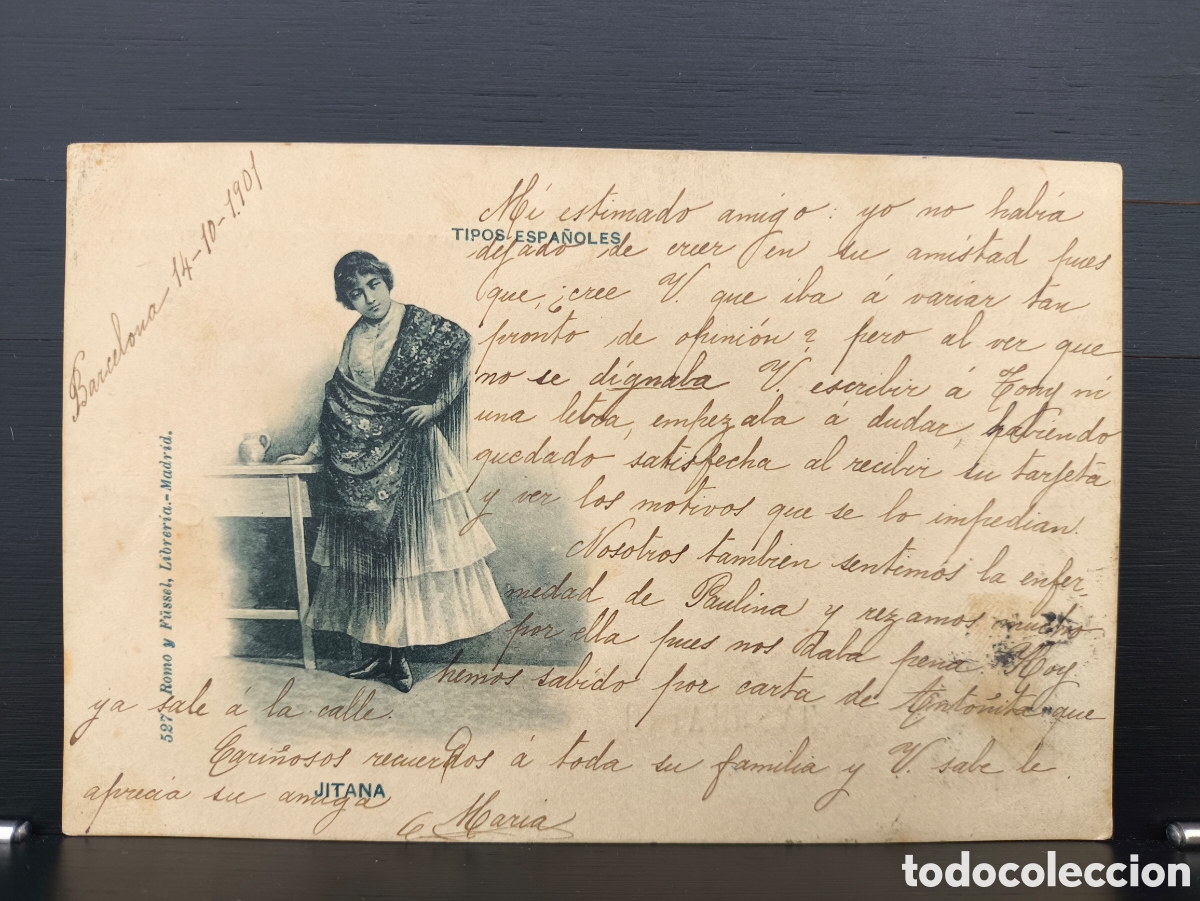 Barcelona 14-10-1901
Mi estimado amigo: yo no había
TIPOS ESPAÑOLES
dejado de creer en su amistad pues
que, ¿cree V. que iba á variar tan
pronto de opinión? pero al ver que
no se dignaba V. escribir á Tony ni
una letra, empezaba á dudar, habiendo
quedado satisfecha al recibir su tarjeta
y ver los motivos que se lo impedian.
Nosotros tambien sentimos la enfer-
medad de Paulina y rezamos mucho
por ella pues nos daba pena. Hoy
hemos sabido por carta de Antoñita que
ya sale á la calle.
Cariñosos recuerdos á toda su familia y V. sabe le
aprecia su amiga
JITANA
Maria
527 Romo y Füssel, Libreria.-Madrid.
todocoleccion